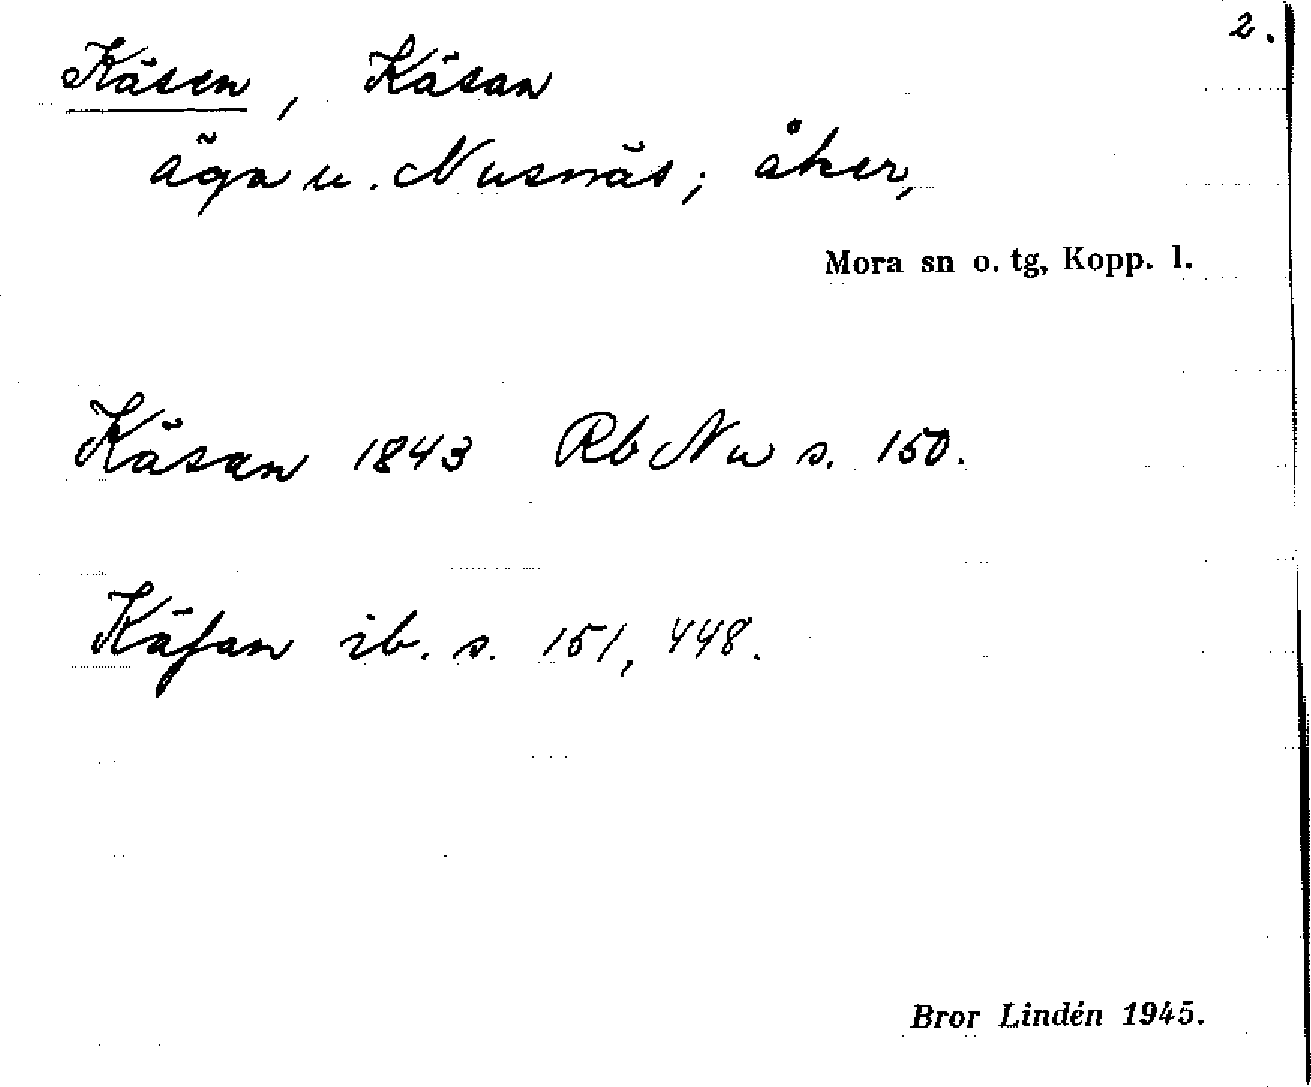 2.
Käsen, Käsan
äga u. Nusnäs; åker,
Mora sn o. tg, Kopp. l.
Käsan 1843 Rb Nu s. 150.
Käſan ib. s. 151, 448.
Bror Lindén 1945.